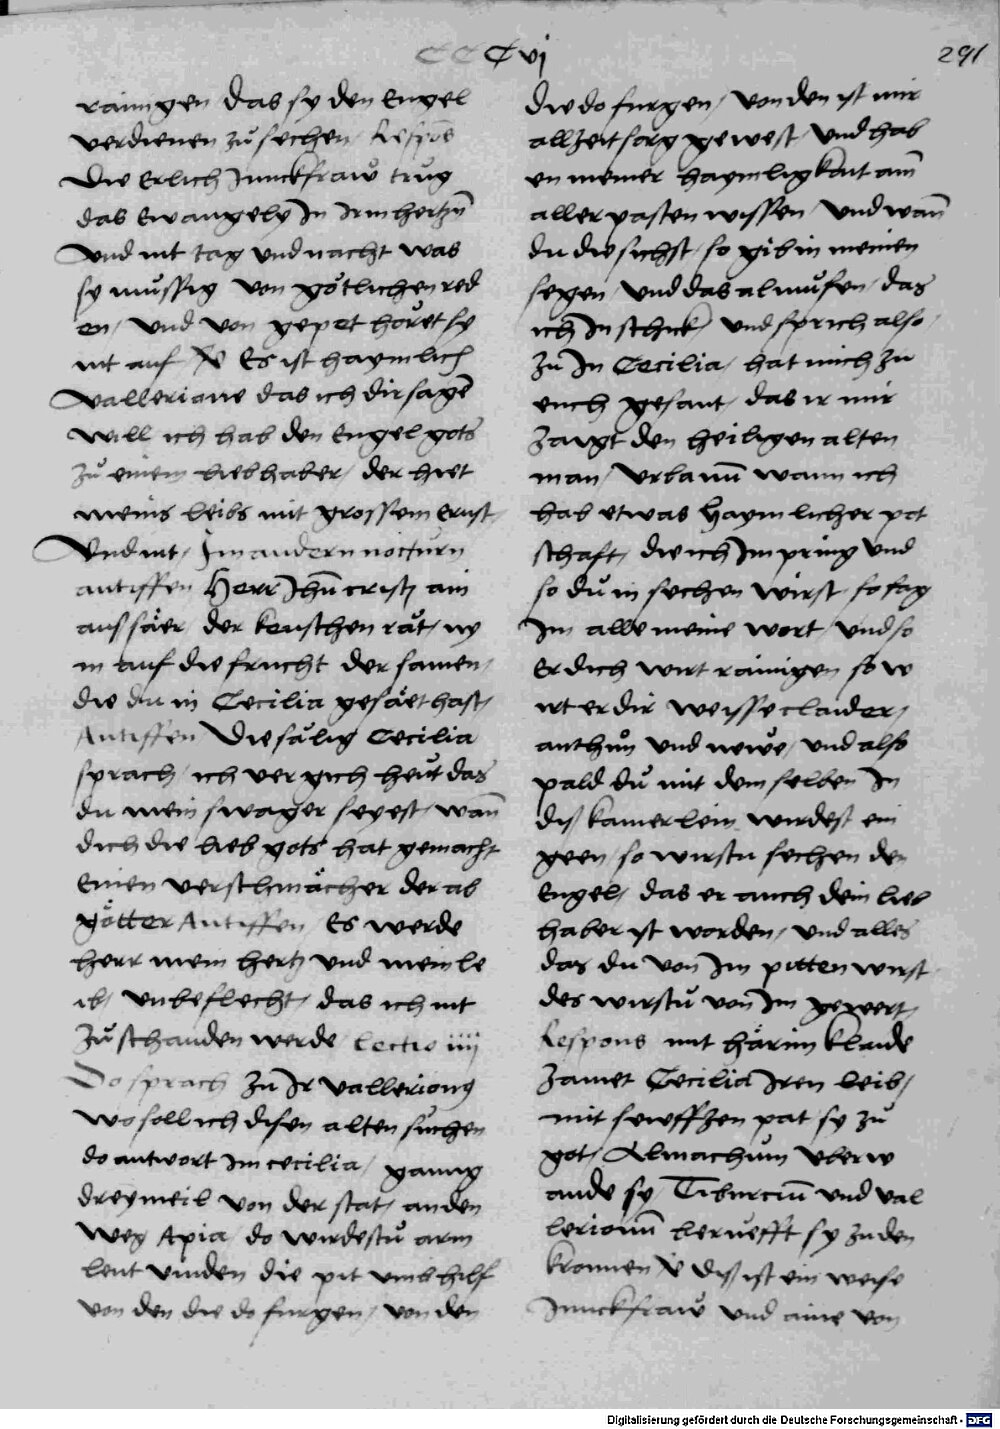 CCCvj
291
rainigen das sy den Engel
verdienen zů sechen / Respons
Die Erlich Junckfraw trůg
das Ewangely In Irm hertzn̄
Vnd nit tag vnd nacht was
sy můssig von gőtlichen red
en / vnd von gepet hőret sy
nit auf V Es ist haymlich
Valleriane das ich dir sagē
will ich hab den Engel gots
zů einem liebhaber / der hiet
meins leibs mit grossem Ernst /
Vnd nit / Im andern nocturn
antiffen Herr Jhū cristj ain
aus säer / der keuschen rät / ny
m auf die frucht der samen /
die du in Cecilia gesäet hast /
Antiffen Die sälig Cecilia
sprach / ich vergich heüt das
du mein swager seyest / wan̄
dich die lieb gots hat gemacht
Einen verschmächer der ab
götter Antiffen / Es werde
herr mein hertz vnd mein le
ib / vnbeflecht / das ich nit
zů schanden werde / Lectio iiij
Do sprach zu Ir valleriong
wo soll ich disen alten sůchen
do antwort Im cecilia / ganng
dreymeil von der stat / an den
weg Apia / do wirdestu arm
leut vinden die pit vmb hilf
von den die do furgen / von den
die do furgen / von den ist mir
allzeit sorg gewest / vnd hab
en meiner haymligkait am̄
aller pasten wissen / vnd wan̄
du die sichst / so gib in meinen
segen / vnd das almůsen / das
ich In schick / vnd sprich also /
zu In Cecilia / hat mich zu
euch gesant / das ir mir
zaigt den heiligen alten
man / vrbanū wann ich
hab etwas haymlicher pot
schaft / die ich Im pring vnd
so du in sechen wirst / so sag
Im alle meine wort / vnd so
Er dich wirt rainigen so w
irt er dir weisse claider /
anthůn vnd newe / vnd also
pald du mit dem selben In
diß kamerlein wirdest ein
geen / so wirstu sechen den
Engel / das er auch dein lieb
haber ist worden / vnd alles
das du von Im pitten wirst
des wirstu von Im gewert /
Respons mit härim klaide
zamet Cecilia Iren leib /
mit sewffzen pat sy zů
got / Almachum vberw
ande sy / Tiburciū vnd val
lerianū berueft sy zu den
kronnen V diß ist ein weise
Junckfraw vnd aine von
Digitalisierung gefördert durch die Deutsche Forschungsgemeinschaft - DFG